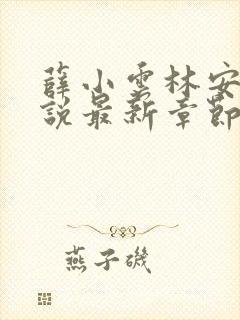 薛小雲林安
說最新章節
燕子磯